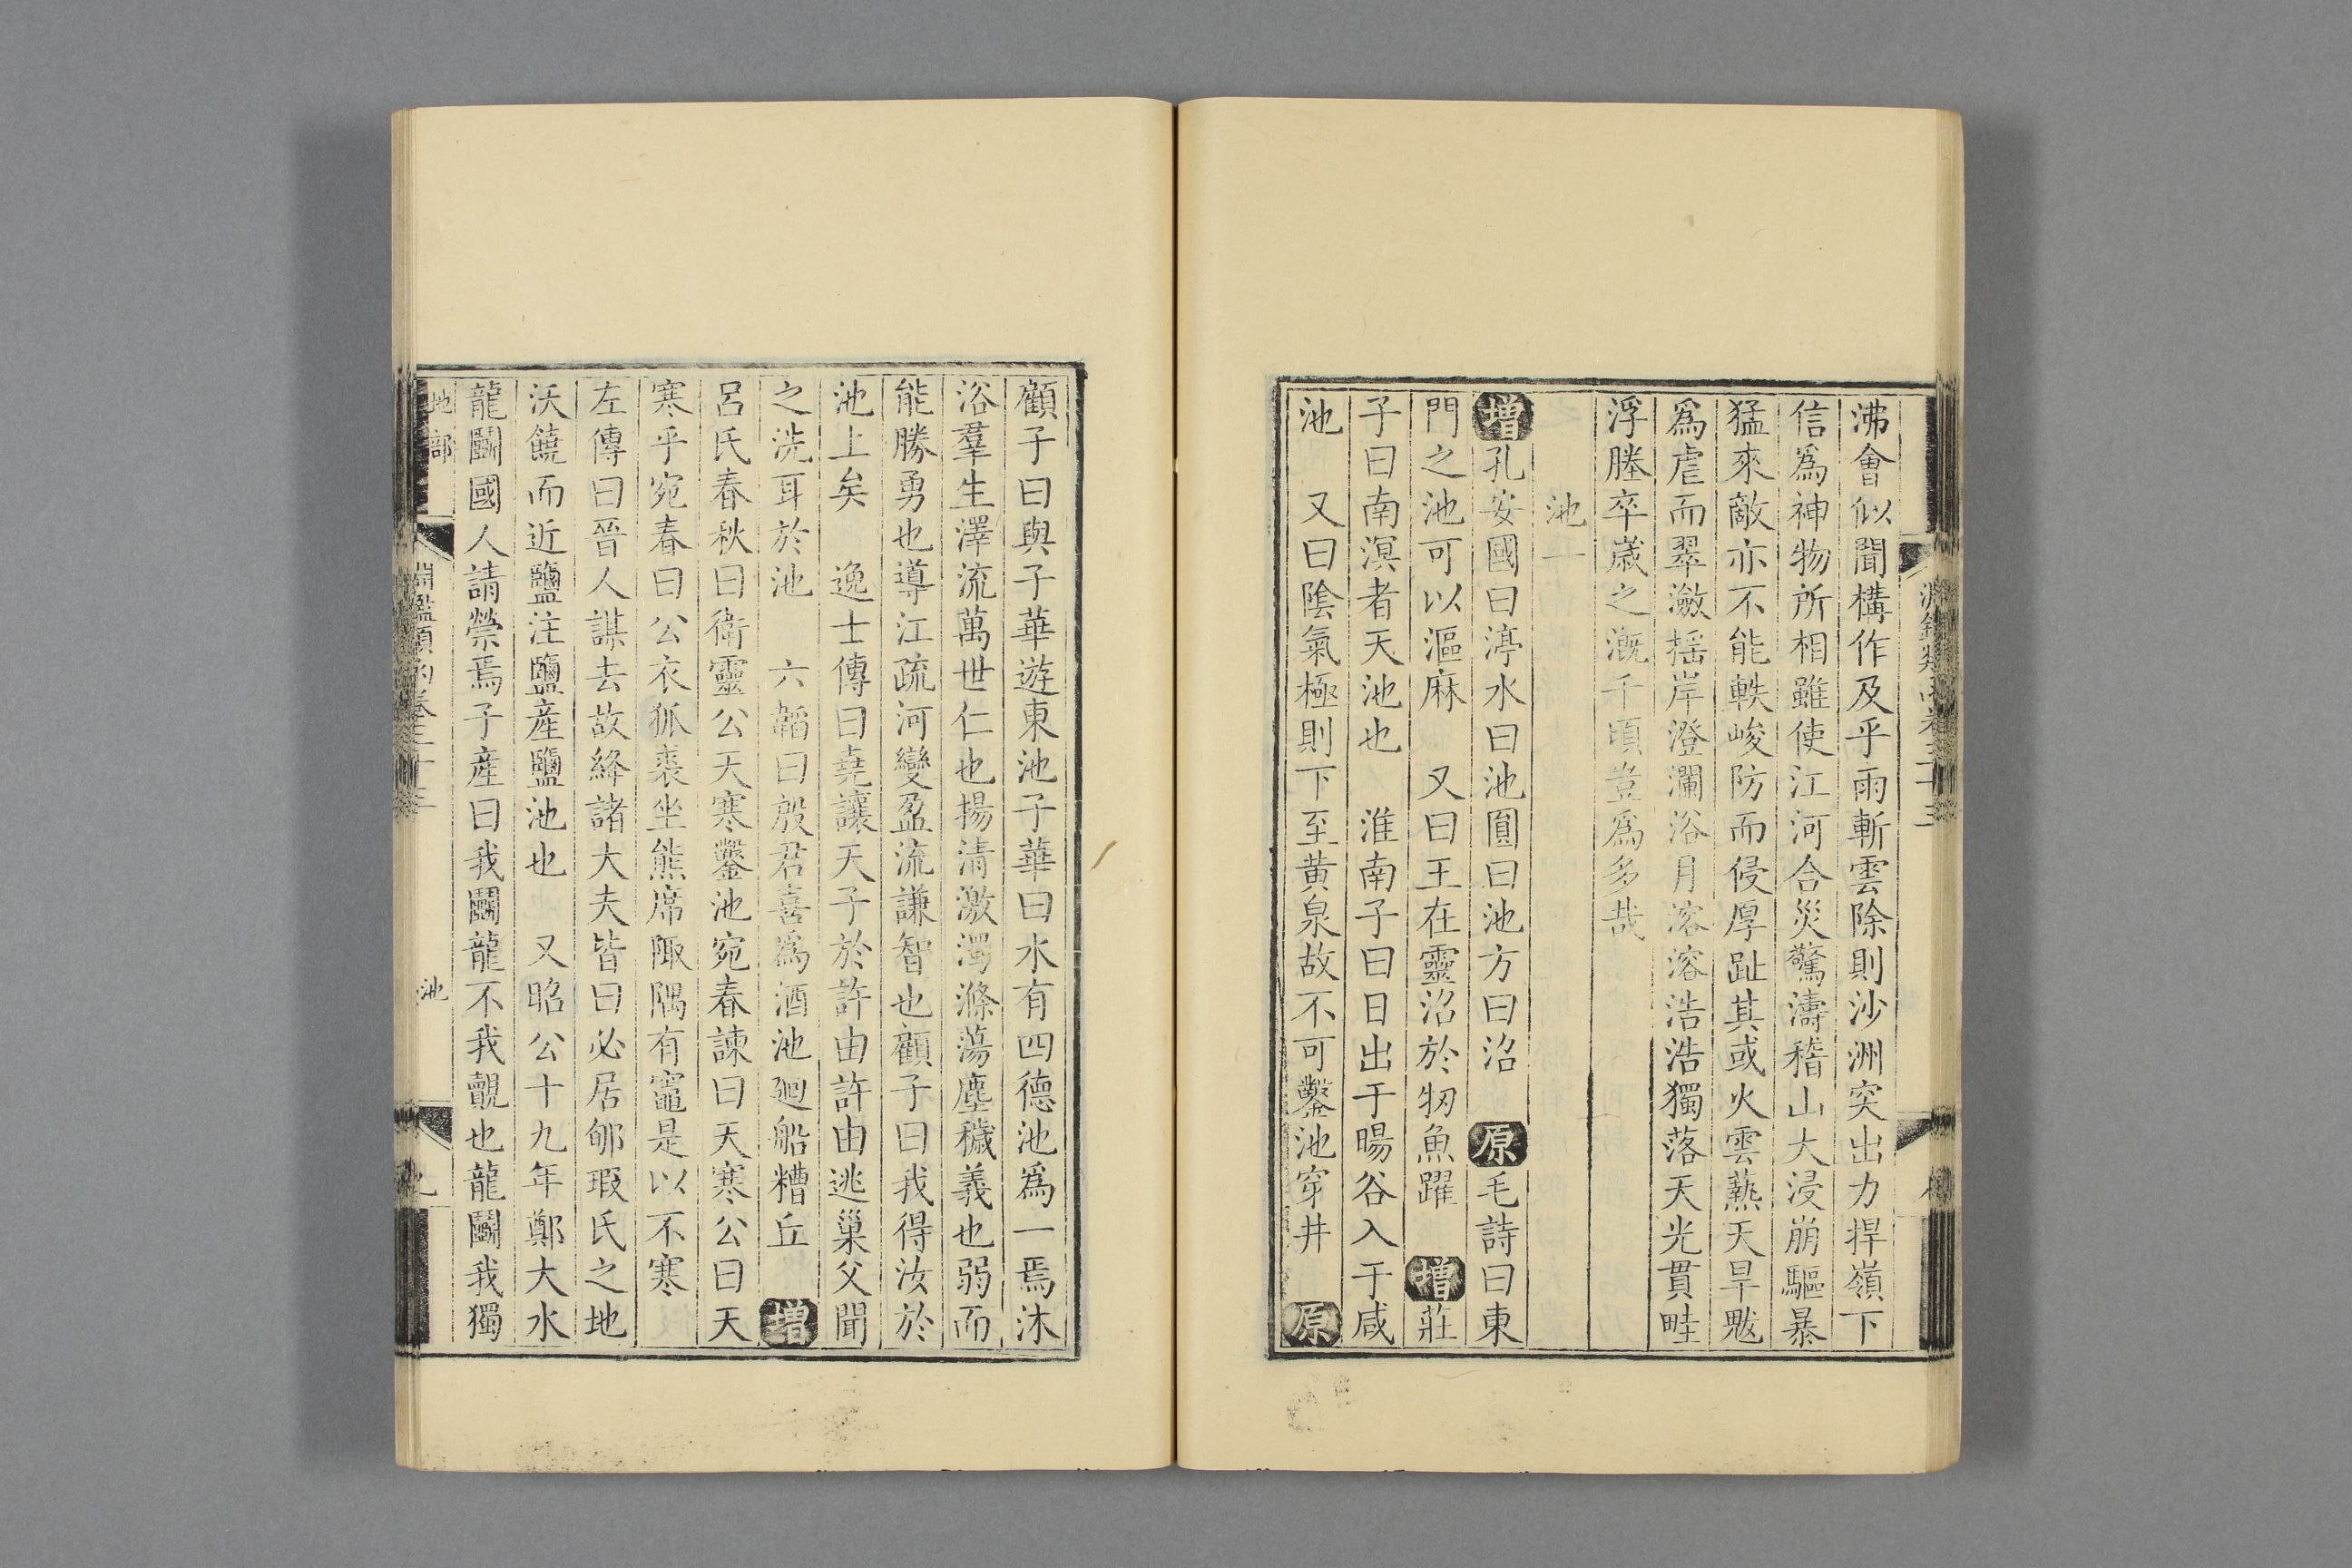 沸會似聞構作及乎雨斬雲除則沙洲突出力捍嶺下
信爲神物所相雖使江河合災驚濤稽山大浸崩驅暴
猛來敵亦不能軼峻防而侵厚趾其或火雲爇天旱魃
爲虐而翠瀲揺岸澄瀾浴月溶溶浩浩獨落天光貫畦
浮塍卒歲之漑千頃豈爲多哉
池一
增孔安國曰渟水曰池圓曰池方曰沼 原毛詩曰東
門之池可以漚麻 又曰王在靈沼於牣魚躍 增莊
子曰南溟者天池也 淮南子曰日出于暘谷入于咸
池 又曰陰氣極則下至黄泉故不可鑿池穿井 原
顧子曰與子華遊東池子華曰水有四德池爲一焉沐
浴羣生澤流萬世仁也揚清激濁滌蕩塵穢義也弱而
能勝勇也導江疏河變盈流謙智也顧子曰我得汝於
池上矣 逸士傳曰堯讓天子於許由許由逃巢父聞
之洗耳於池 六韜曰殷君喜爲酒池廻船糟丘 增
呂氏春秋曰衛靈公天寒鑿池宛春諫曰天寒公曰天
寒乎宛春曰公衣狐裘坐熊席陬隅有竈是以不寒
左傳曰晉人謀去故絳諸大夫皆曰必居郇瑕氏之地
沃饒而近鹽注鹽產鹽池也 又昭公十九年鄭大水
龍鬬國人請禜焉子產曰我鬬龍不我覿也龍鬬我獨
地部
淵鑑類函卷三十三
池